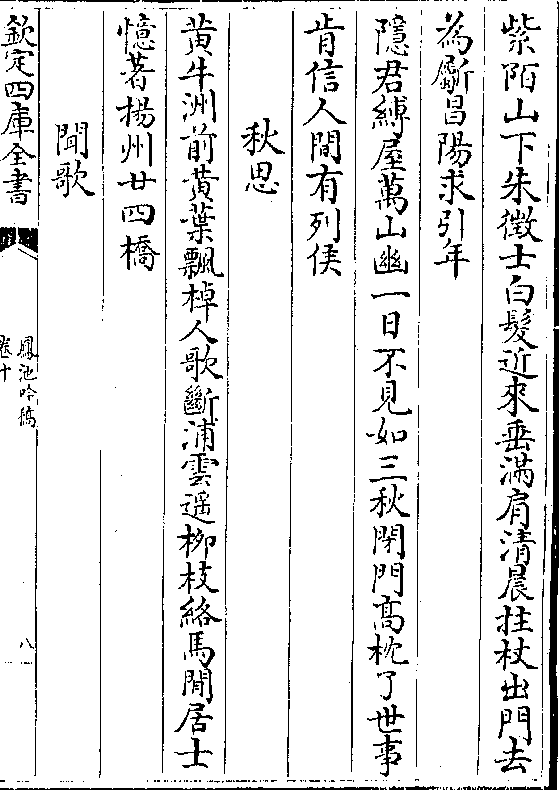 紫陌山下朱徴士白髮近來垂滿肩清晨拄杖出門去
為斸昌陽求引年
隱君縛屋萬山幽一日不見如三秋閉門高枕了世事
肯信人間有列侯
秋思
黄牛洲前黃葉飄棹人歌斷浦雲遥柳枝絡馬閒居士
憶著揚州廿四橋
聞歌
欽定四庫全書
鳳池吟稿
卷十
八